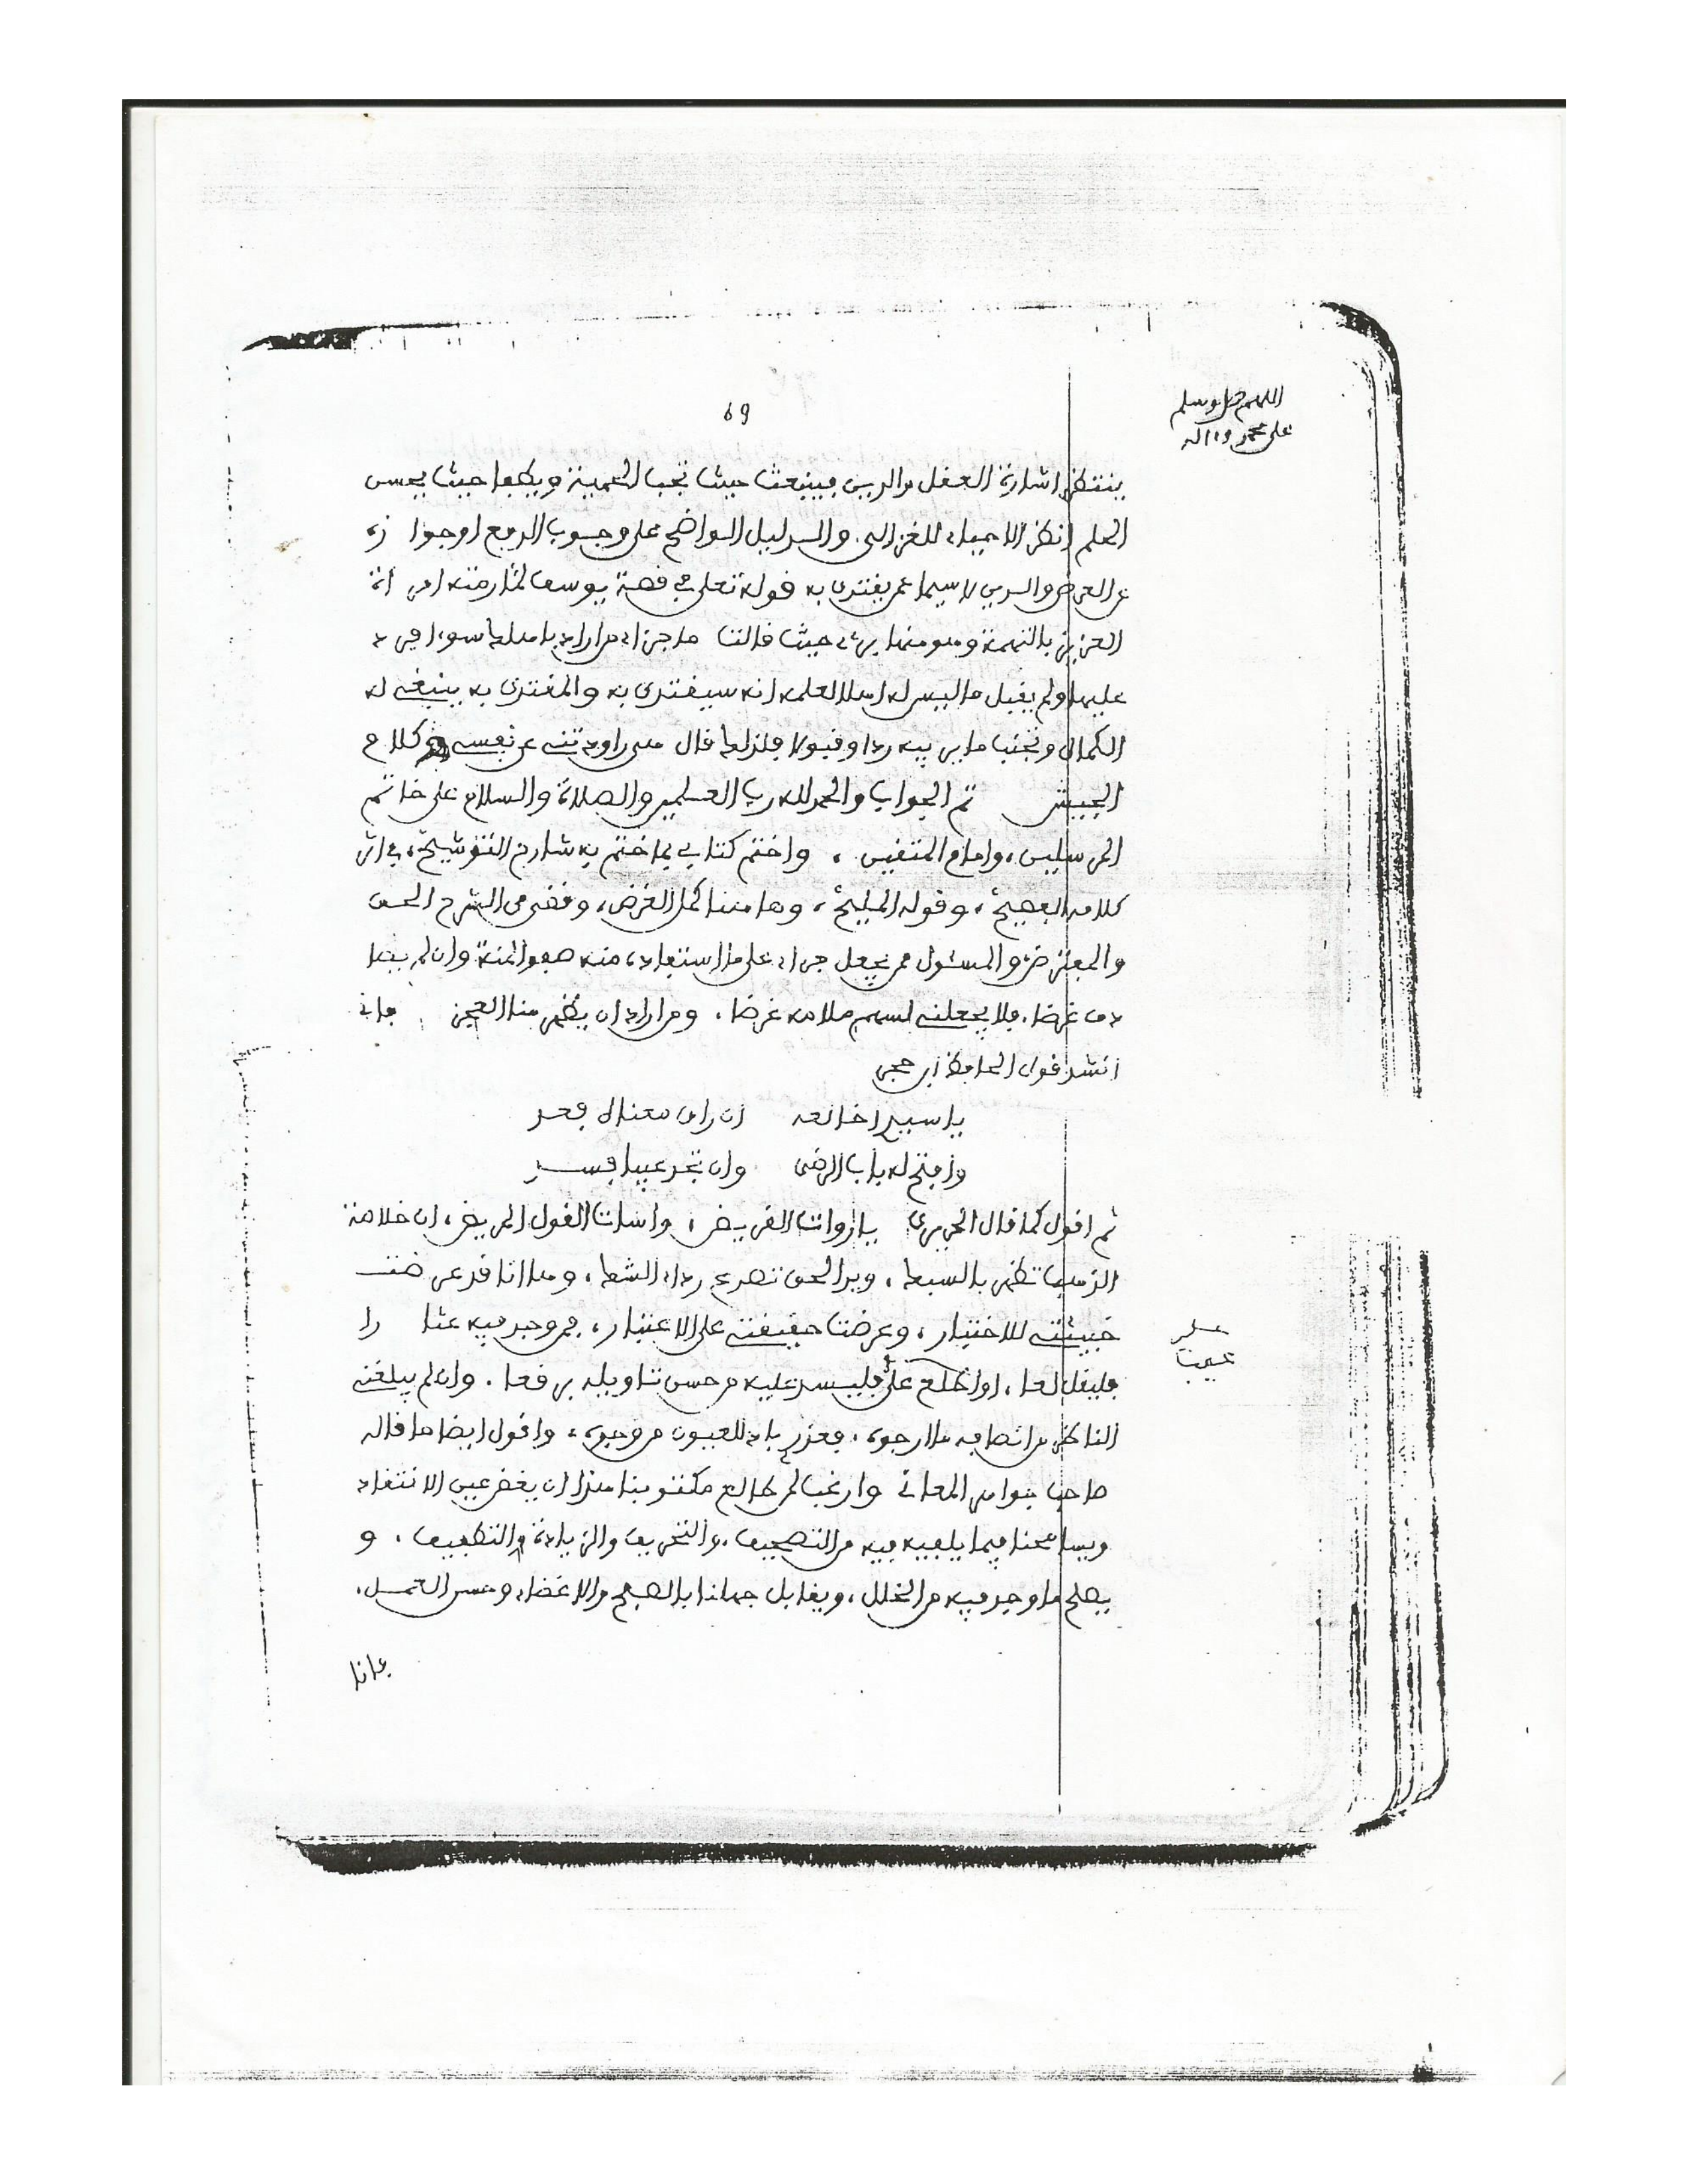 اللهم صل وسلم
على محمد وءاله
69
ينتظر اشارة العقل والدين فينبعث حيث تجب الحمية ويطفأ حيث يحسن
الحلم انظر الاحياء للغزالي والدليل الواضح على وجوب الدفع او جوازه
عن العرض والدين لاسيما عمن يقتدى به قوله تعلى في قصة يوسف لما رمته امرأة
العزيز بالتهمة وهو منها برىء حيث قالت ما جزاء من اراد باهلك سوءا فرد
عليها ولم يقبل ما ليس له اهلا لعلمه انه سيقتدى به والمقتدى به ينبغي له
الكمال وتجنب ما يرى فيه ردا وقبولا فلذلك قال هي راودتني عن نفسي كلام
المجيب تم الجواب والحمد لله رب العلمين والصلاة والسلام على خاتم
المرسلين، وامام المتقين، واختم كتابي بما ختم به شارح التوشيح، في اثر
كلامه الفصيح، وقوله المليح، وهاهنا كمل الغرض، وقضي من الشرح الحق
والمفترض والمسئول ممن يجعل جزاء على ما استفاده منه صفو المنة وان لم يصا
دف غرضا، فلا يجعلني لسهم ملامه غرضا، ومن اراد ان يظهر منا العجز فاني
انشد قول الحافظ ابن حجر
يا سيدا طالعه ان راق معناه فعد
وافتح له باب الرضى وان تجد عيبا فسد
ثم اقول كما قال الحريري يا رواة القريض، واساة القول المريض، ان خلاصة
الذهب تظهر بالسبك، ويد الحق تصدع رداء الشك، وها انا قد عرضت
خبيئتي للاختبار، وعرضت حقيبتي على الاعتبار، فمن وجد فيه عثا را
فليقل لعا، او اطلع على فليسد عليه من حسن تاويله برقعا، وان لم يبلغني
الناظر من انصافه ما ارجوه، فعذر باد للعيون من وجوه، واقول ايضا ما قاله
صاحب جواهر المعاني وارغب لمن طالع مكتوبنا هذا ان يغض عين الانتقاد
ويسامحنا فيما يلفيه فيه من التصحيف، والتحريف والزيادة والتطفيف، و
يصلح ما وجد فيه من الخلل، ويقابل جهلنا بالصفح والاغضاء وحسن العمل،
عيب
فانا